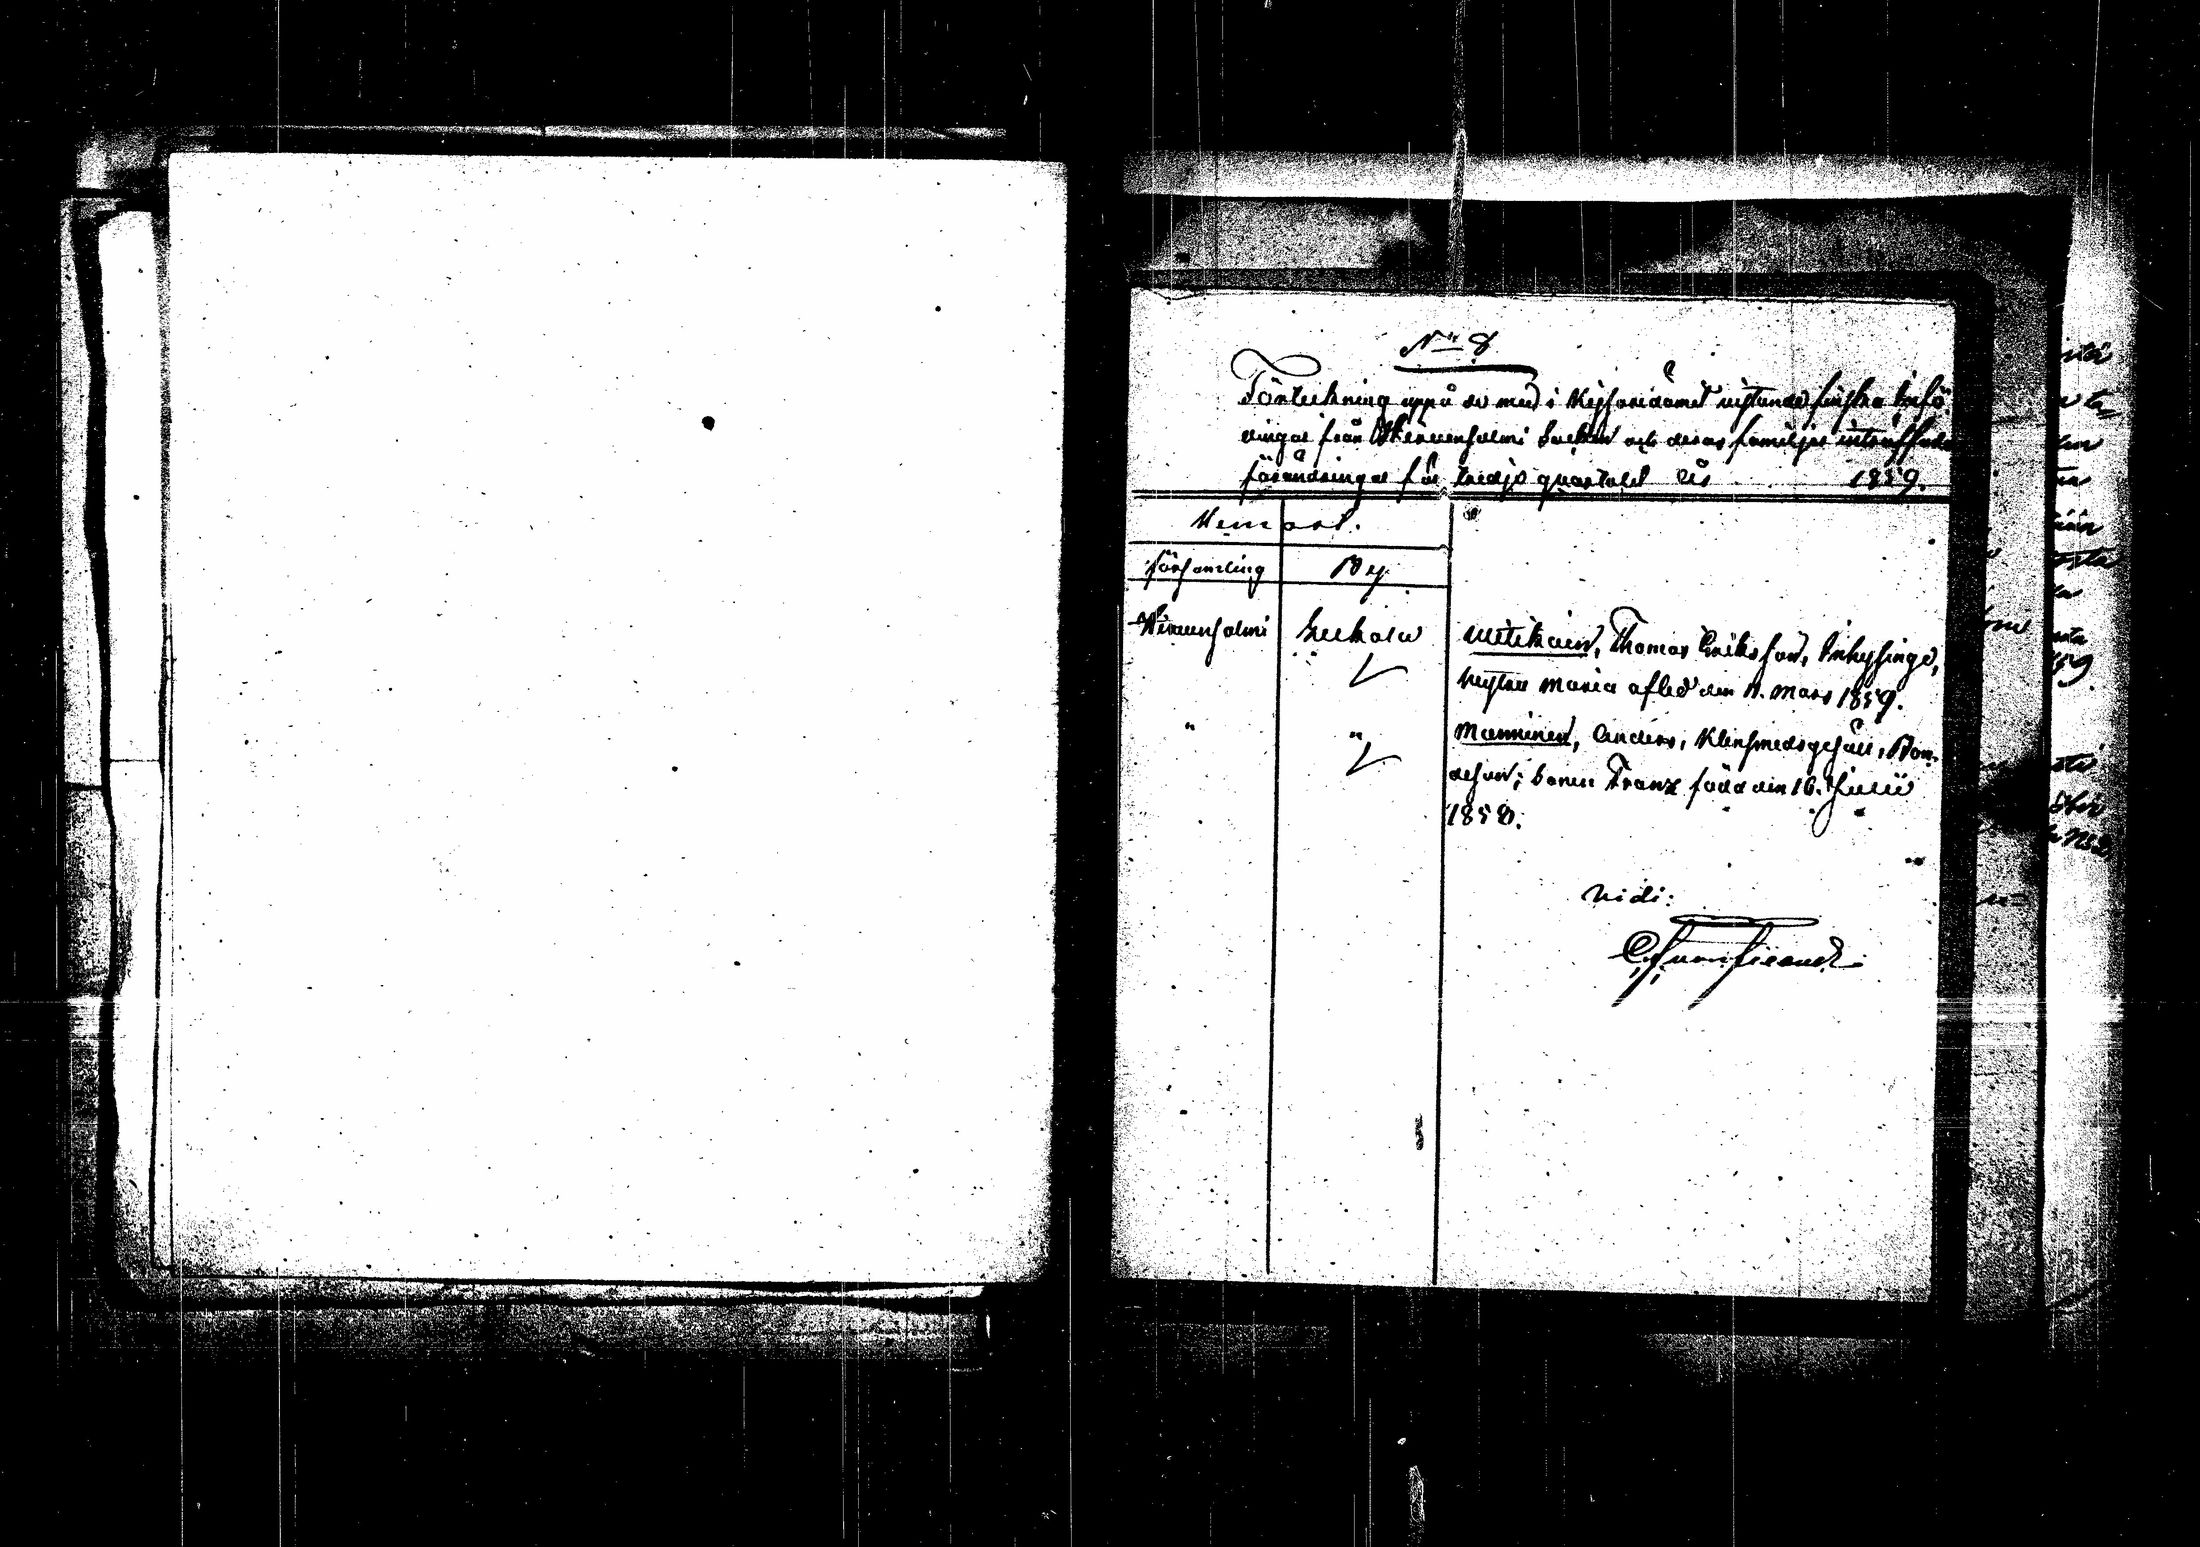 No 8
Förteckning uppå de med i Kejsaredömet vistande finska Infö-
ningar från Hirvensalmi Socken och deras familjer inträffade
förändringar för tredje quartalet års 1859.
Hemort.
Församling
By
Hirvensalmi
Suckola
Thomas Eriksson, Inhysinge,
hustru Maria afled den 11. Mars 1859.
"
"
Manninen, Anders, Klensmedsgesäll, Bon-
deson; sonen Franz född den 16. Julii
1858.
Vidi: